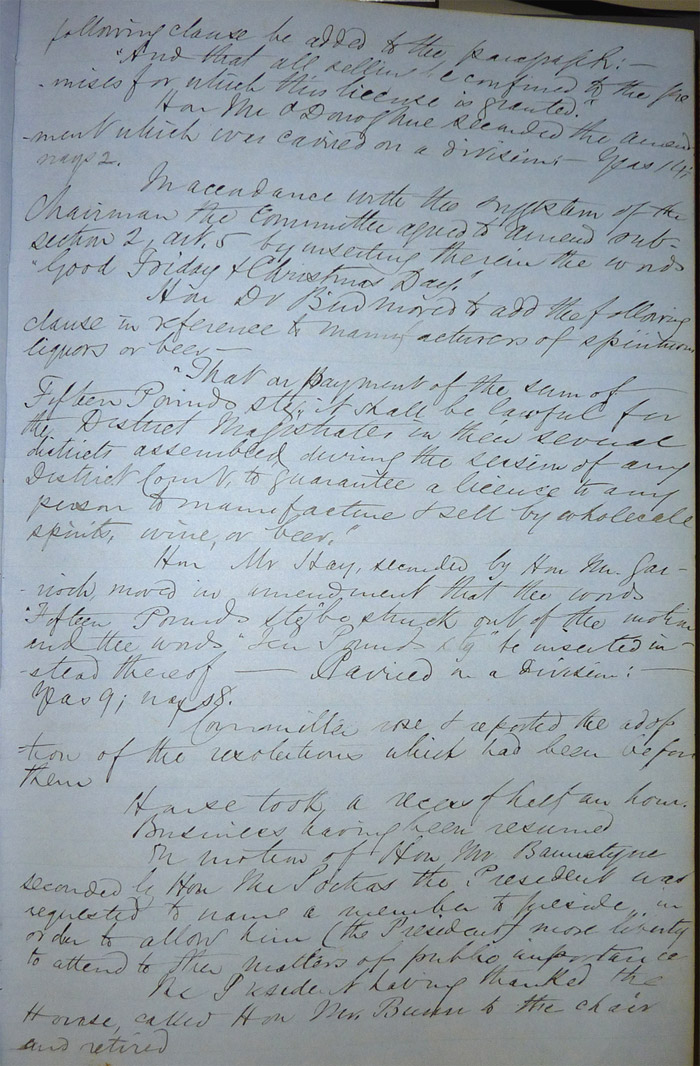 following clause be added to the paragraph:—
"And that all selling be confined to the pre
-mises for which this license is granted."
Hon Mr O'Donoghue seconded the amend
-ment which was carried on a division:— Yeas 14;
nays 2.
In accordance with the of the
Chairman the Committee agreed to amend sub-
section 2, art. 5 by inserting therein the words
"Good Friday & Christmas Day."
Hon Dr Bird moved to add the following
clause in reference to manufacturers of spirituous
liquors or beer—
"That on payment of the sum of
Fifteen Pounds stg, it shall be lawful for
the District Magistrates in their several
districts assembled during the session of any
District Court, to guarantee a licence to any
person to manufacture & sell by wholesale
spirits, wine, or beer."
Hon Mr Hay, seconded by Hon Mr. Gar-
-nioch, moved in amendment that the words
"Fifteen Pounds stg" be struck out of the motion
and the words "Ten Pounds stg" be inserted in-
-stead thereof — Carried on a division:—
Yeas 9; nays 8.
Committee rose & reported the adop
-tion of the resolutions which had been before
them
House took a recess of half an hour.
Business having been resumed
On motion of Hon Mr Bannatyne
seconded by Hon Mr Poitras the President was
requested to name a member to preside in
order to allow him (the President) more liberty
to attend to other matters of public importance
The President having thanked the
House, called Hon Mr. Bunn to the chair
and retired